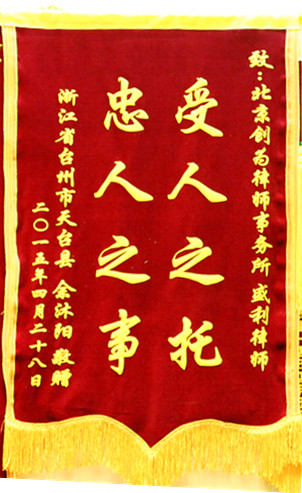 致:北京创为律师事务所 盛利律师
受人之托
忠人之事
浙江省台州市天台县 余沐阳敬赠
二〇一五年四月二十八日